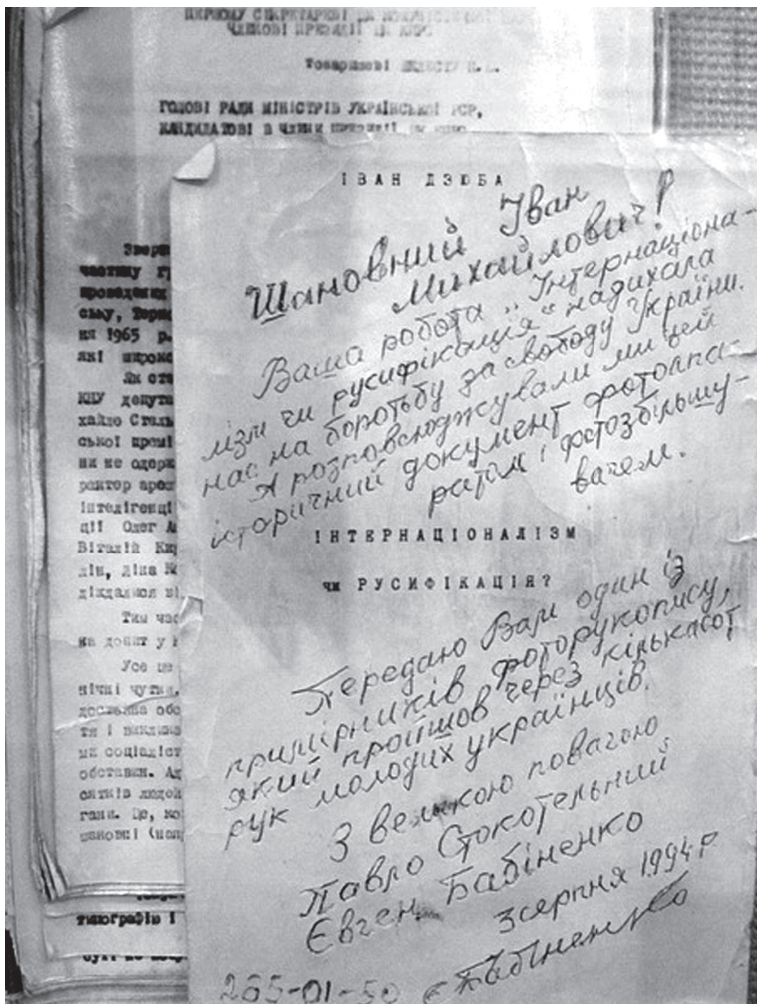 ПЕРШОМУ СЕКРЕТАРЕВІ ЦК
ЧЛЕНОВІ ПРЕЗИДІЇ ЦК КПРС
Товаришеві ШЕЛЕСТУ П.Ю.
ГОЛОВІ РАДИ МІНІСТРІВ УКРАЇНСЬКОЇ РСР,
КАНДИДАТОВІ В ЧЛЕНИ ПРЕЗИДІЇ ЦК КПРС
ІВАН ДЗЮБА
Шановний Іван
Михайлович!
Ваша робота „Інтернаціона-
лізм чи русифікація" надихала
нас на боротьбу за свободу України.
А розповсюджували ми цей
історичний документ фотоапа-
ратом і фотозбільшу-
вачем.
ІНТЕРНАЦІОНАЛІЗМ
чи РУСИФІКАЦІЯ?
Передаю Вам один із
примірників фоторукопису,
який пройшов через кількасот
рук молодих українців.
З великою повагою
Павло Стокотельний
Євген Бабіненко
3 серпня 1994 р
265-01-50
частину
проведених
ську,
ня 1965 р.
які широко
Як
КПУ депута
хайло Стель
ської премі
ни не одерж
ректор
інтелігенці
ції Олег
Віталій
дін, Ліна
діждалися
Тим час
на допит у
Усе це
нічні чутки,
ти і виклика
ми соціаліст
обставин.
сятків людей
гани. Це,
типографію і